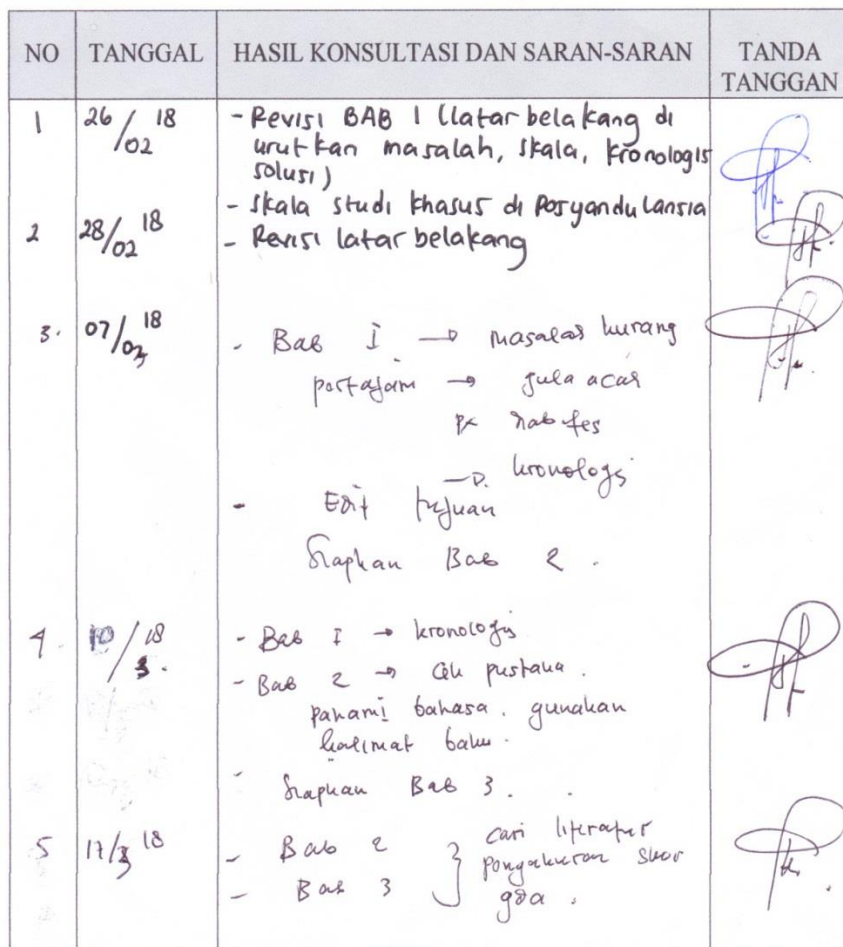 NO TANGGAL HASIL KONSULTASI DAN SARAN-SARAN TANDA TANGGAN
1 26/02 18 - Revisi BAB 1 (latar belakang di
urutkan masalah, skala, kronologis
solusi)
- skala studi khasus di Posyandu Lansia
2 28/02 18 - Revisi latar belakang
3. 07/03 18 - Bab I → masalah kurang
pertajam → gula acak
→ kronologis
- Edit tujuan
Siapkan Bab 2.
4. 10/3. 18 - Bab I → kronologis
- Bab 2 → cek pustaka.
pahami bahasa. gunakan
kalimat baku.
- Siapkan Bab 3.
5 17/3 18 - Bab 2 } cari literatur
- Bab 3 } pengukuran skor
gda.